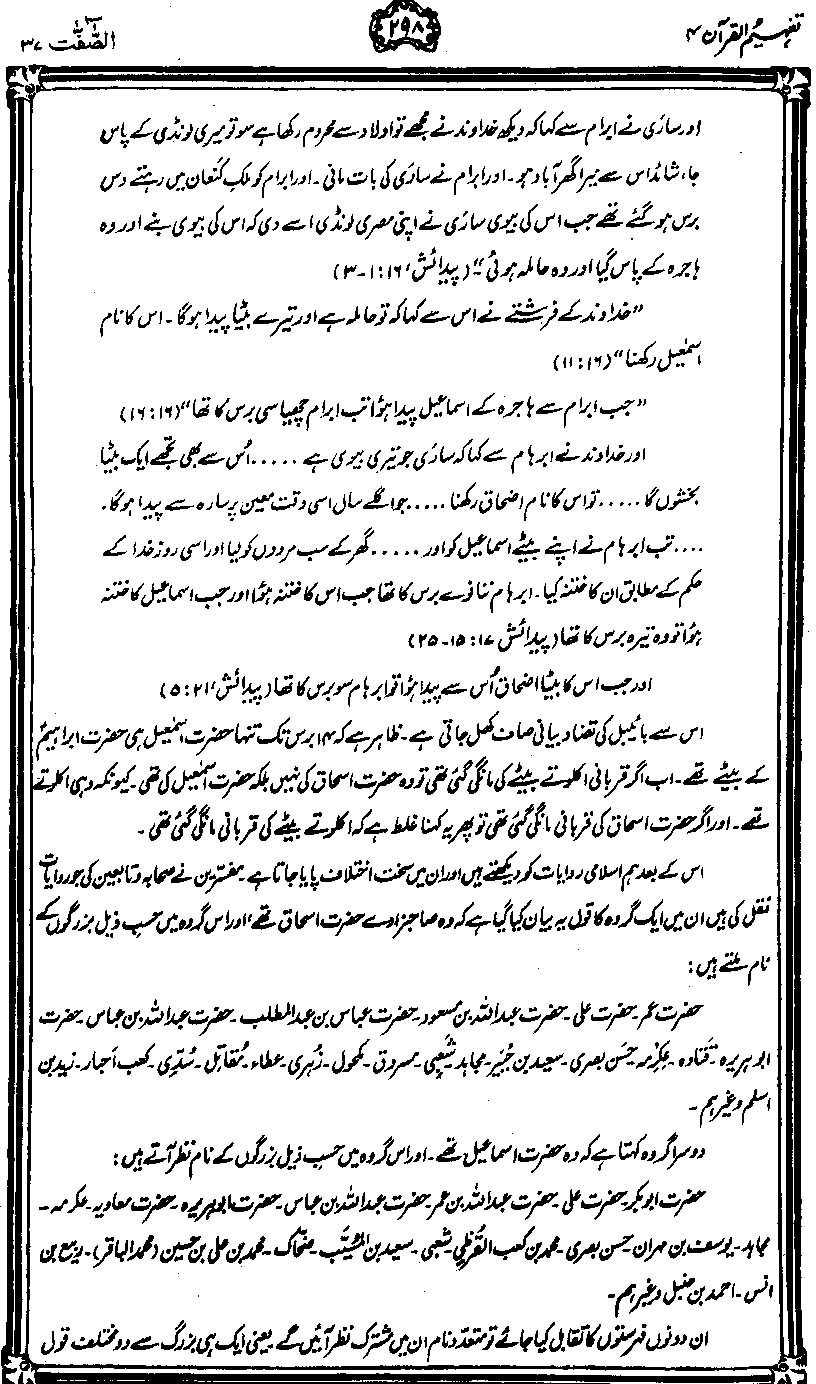 تفہیم القرآن ۴
۲۹۸
الصّٰفّٰت ۳۷
اور ساری نے ابرام سے کہا کہ دیکھ خداوند نے مجھے تو اولاد سے محروم رکھا ہے سو تو میری لونڈی کے پاس
جا، شاید اس سے میرا گھر آباد ہو۔ اور ابرام نے ساری کی بات مانی۔ اور ابرام کو ملک کنعان میں رہتے دس
برس ہو گئے تھے جب اس کی بیوی ساری نے اپنی مصری لونڈی اسے دی کہ اس کی بیوی بنے اور وہ
ہاجرہ کے پاس گیا اور وہ حاملہ ہوئی“۔ (پیدائش، ۱۶:۱-۳)
”خداوند کے فرشتے نے اس سے کہا کہ تو حاملہ ہے اور تیرے بیٹا پیدا ہوگا۔ اس کا نام
اسمٰعیل رکھنا“ (۱۶:۱۱)
”جب ابرام سے ہاجرہ کے اسماعیل پیدا ہوا تب ابرام چھیاسی برس کا تھا“ (۱۶:۱۶)
اور خداوند نے ابرہام سے کہا کہ ساری جو تیری بیوی ہے ..... اُس سے بھی تجھے ایک بیٹا
بخشوں گا ..... تو اس کا نام اضحاق رکھنا ..... جو اگلے سال اسی وقت معین پر سارہ سے پیدا ہوگا۔
.... تب ابرہام نے اپنے بیٹے اسماعیل کو اور ..... گھر کے سب مردوں کو لیا اور اسی روز خدا کے
حکم کے مطابق ان کا ختنہ کیا۔ ابرہام ننانوے برس کا تھا جب اس کا ختنہ ہوا اور جب اسماعیل کا ختنہ
ہوا تو وہ تیرہ برس کا تھا (پیدائش ۱۷:۱۵-۲۵)
اور جب اس کا بیٹا اضحاق اُس سے پیدا ہوا تو ابرہام سو برس کا تھا (پیدائش، ۲۱:۵)
اس سے بائیبل کی تضاد بیانی صاف کھل جاتی ہے۔ ظاہر ہے کہ ۱۴ برس تک تنہا حضرت اسمٰعیل ہی حضرت ابراہیمؑ
کے بیٹے تھے۔ اب اگر قربانی اکلوتے بیٹے کی مانگی گئی تھی تو وہ حضرت اسحاق کی نہیں بلکہ حضرت اسمٰعیل کی تھی۔ کیونکہ وہی اکلوتے
تھے۔ اور اگر حضرت اسحاق کی قربانی مانگی گئی تھی تو پھر یہ کہنا غلط ہے کہ اکلوتے بیٹے کی قربانی مانگی گئی تھی۔
اس کے بعد ہم اسلامی روایات کو دیکھتے ہیں اور ان میں سخت اختلاف پایا جاتا ہے۔ مفسّرین نے صحابہ و تابعین کی جو روایات
نقل کی ہیں ان میں ایک گروہ کا قول یہ بیان کیا گیا ہے کہ وہ صاحبزادے حضرت اسحاق تھے، اور اس گروہ میں حسبِ ذیل بزرگوں کے
نام ملتے ہیں:
حضرت عمر۔ حضرت علی۔ حضرت عبداللہ بن مسعود۔ حضرت عباس بن عبدالمطلب۔ حضرت عبداللہ بن عباس۔ حضرت
ابوہریرہ۔ قَتادہ۔ عِکرِمہ۔ حَسَن بصری۔ سعید بن جُبَیر۔ مجاہد۔ شَعبِی۔ مسروق۔ مکحول۔ زُہری۔ عطاء۔ مُقاتِل۔ سُدّی۔ کعب اَحبار۔ زید بن
اسلم وغیرہم۔
دوسرا گروہ کہتا ہے کہ وہ حضرت اسماعیل تھے۔ اور اس گروہ میں حسب ذیل بزرگوں کے نام نظر آتے ہیں:
حضرت ابوبکر۔ حضرت علی۔ حضرت عبداللہ بن عمر۔ حضرت عبداللہ بن عباس۔ حضرت ابوہریرہ۔ حضرت معاویہ۔ عکرمہ۔
مجاہد۔ یوسف بن مہران۔ حسن بصری۔ محمد بن کعب القُرَظی۔ شعبی۔ سعید بن المُسیَّب۔ ضحّاک۔ محمد بن علی بن حسین (محمد الباقر)۔ ربیع بن
انس۔ احمد بن حنبل وغیرہم۔
ان دونوں فہرستوں کا تقابل کیا جائے تو متعدد نام ان میں مشترک نظر آئیں گے یعنی ایک ہی بزرگ سے دو مختلف قول